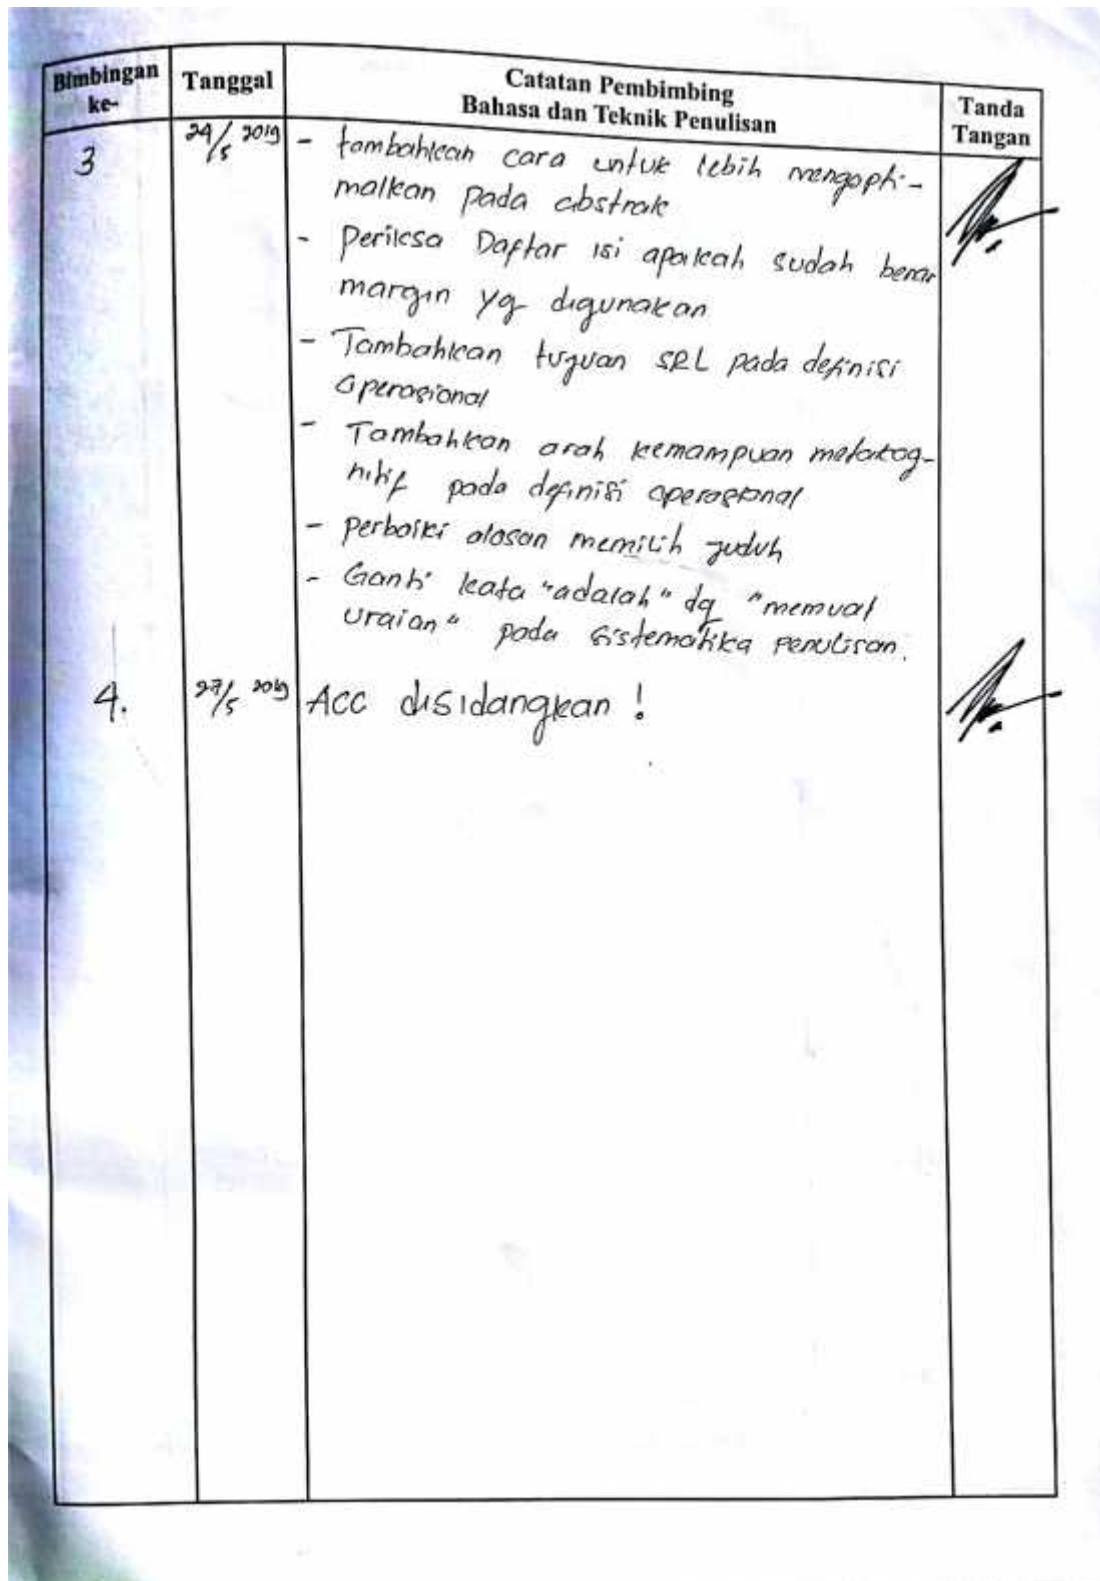 Bimbingan ke-
Tanggal
Catatan Pembimbing
Bahasa dan Teknik Penulisan
Tanda Tangan
3
24/5 2019
- tambahkan cara untuk lebih mengopti-
malkan pada abstrak
- Periksa Daftar isi apakah sudah benar
margin yg digunakan
- Tambahkan tujuan SRL pada definisi
Operasional
- Tambahkan arah kemampuan metakog-
nitif pada definisi operasional
- perbaiki alasan memilih juduh
- Ganti kata "adalah" dg "memuat
uraian" pada sistematika penulisan.
4.
27/5 2019
ACC disidangkan !